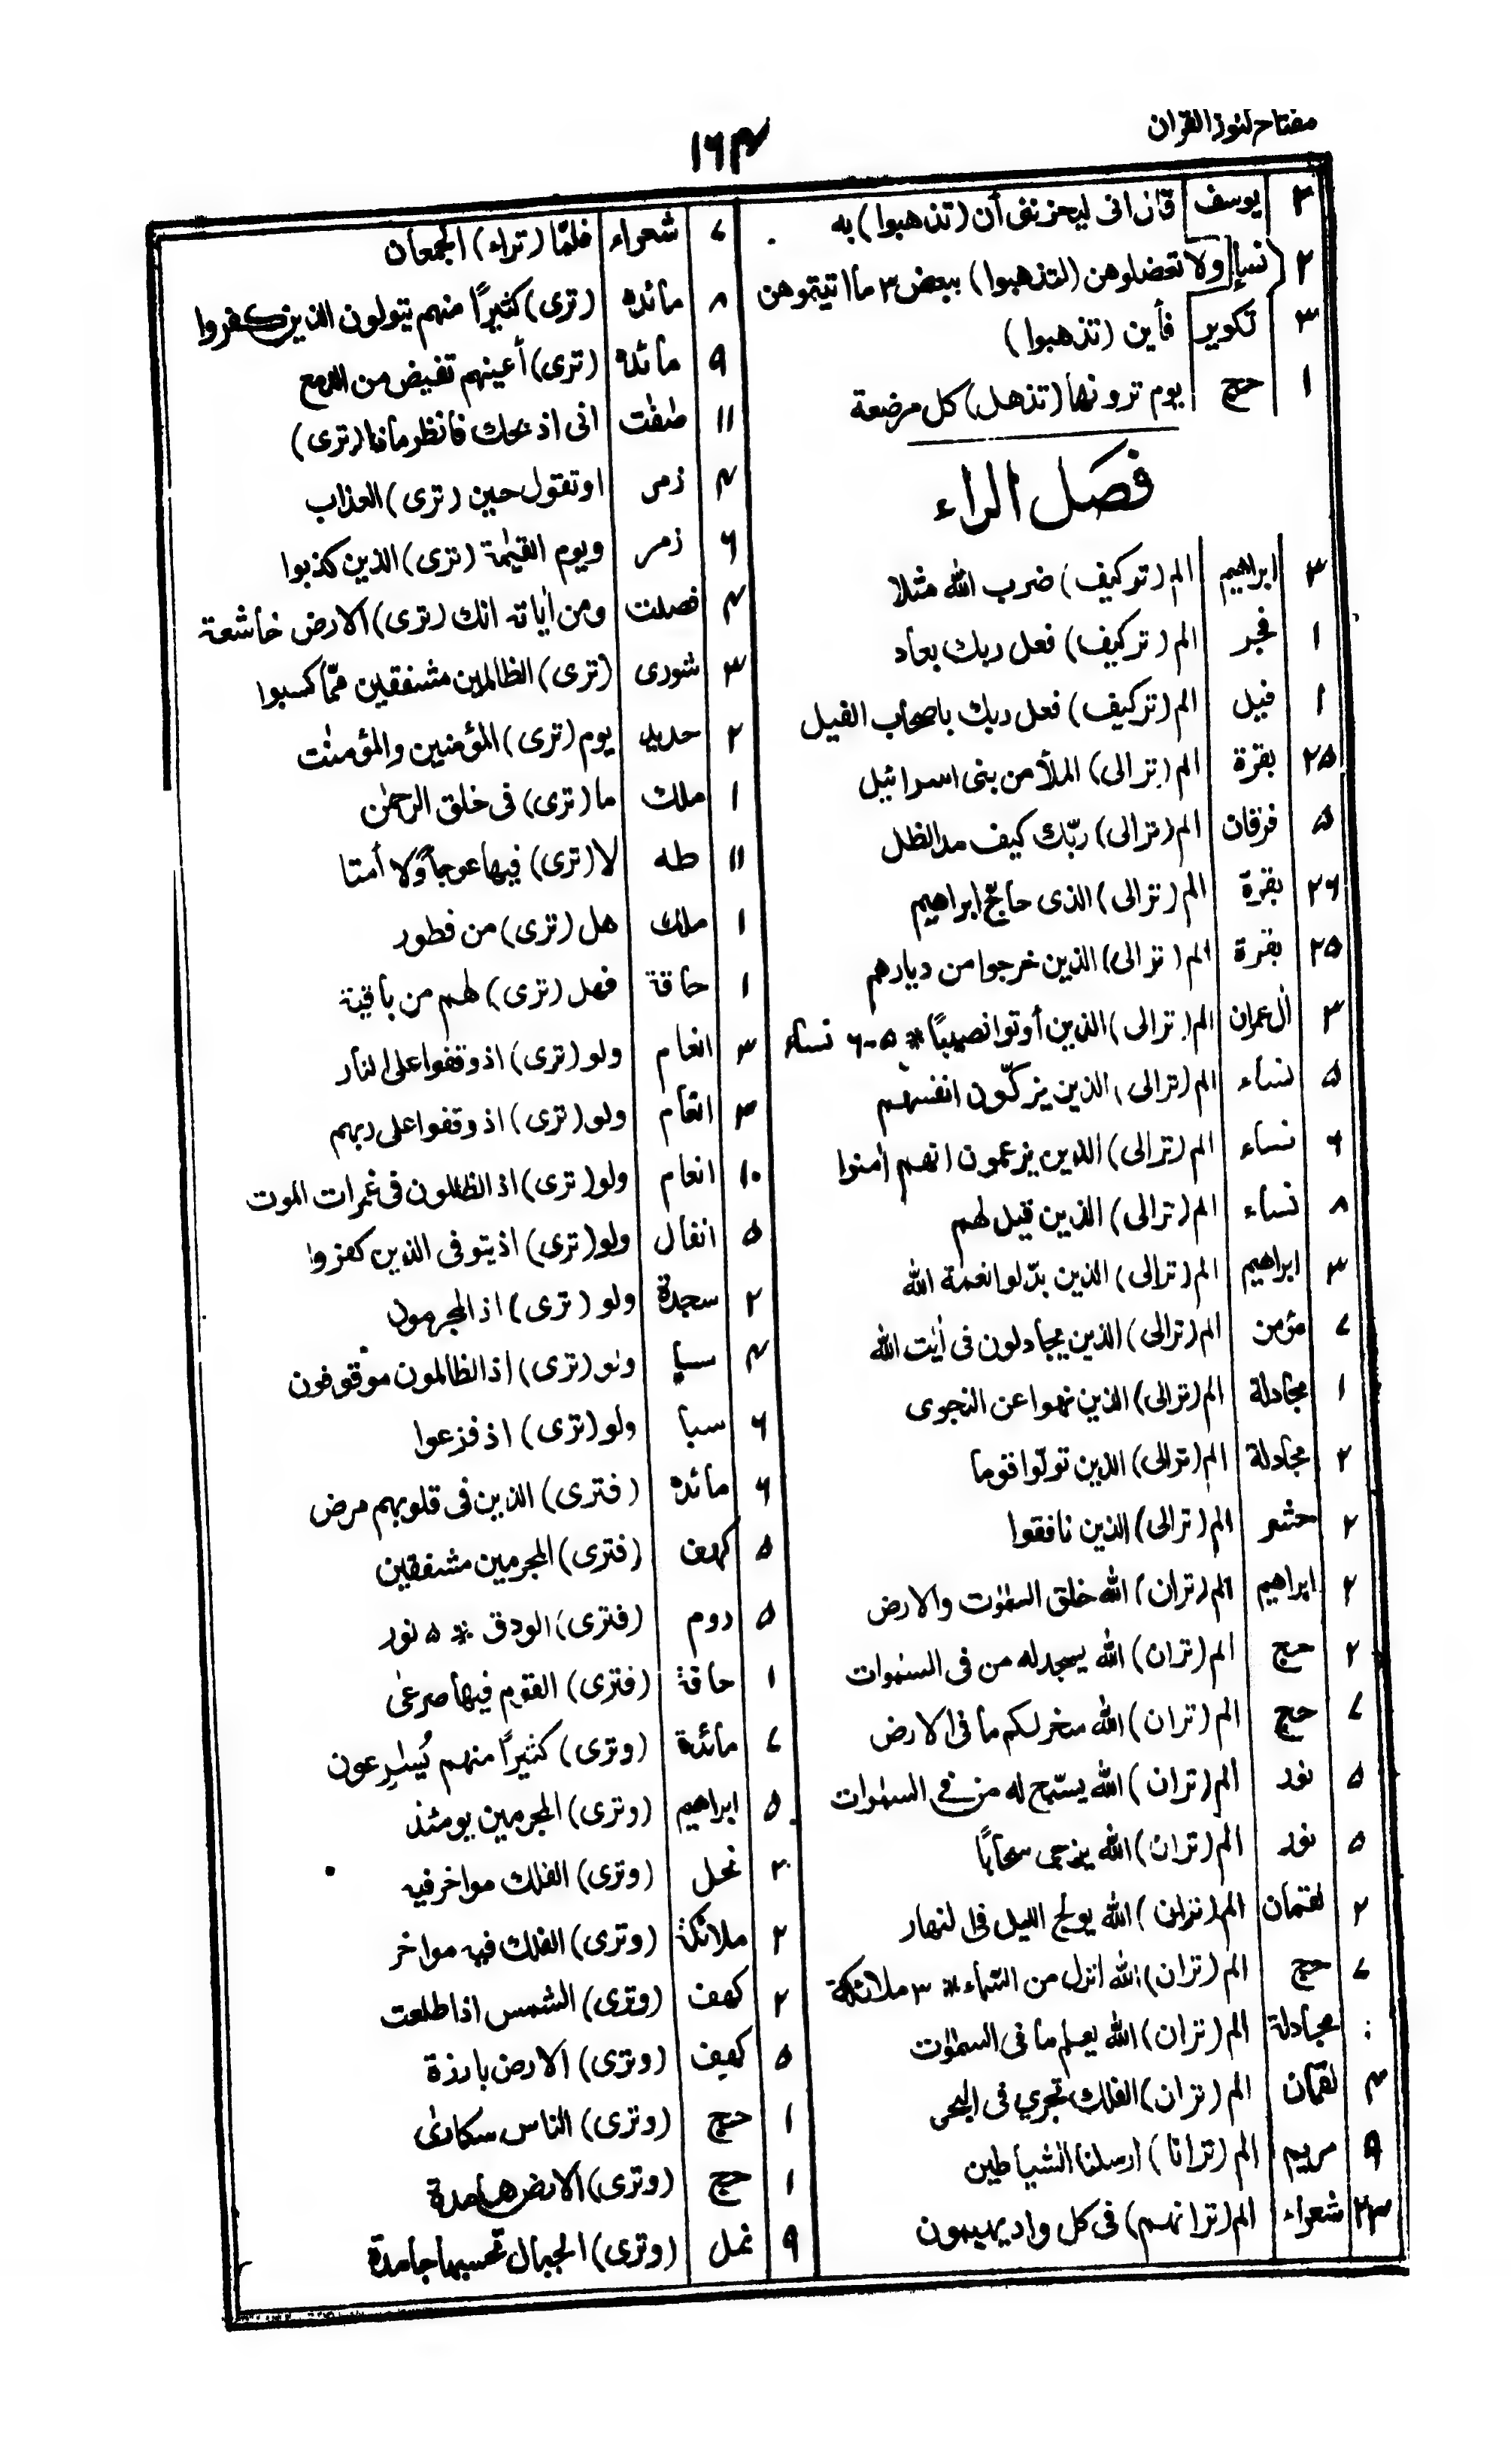 مفتاح كنوز القران
١٦٤
٣ يوسف قال انى ليحزننى أن (تذهبوا) به
٢ نساء ولا تعضلوهن (لتذهبوا) ببعض ٣ ما اتيتموهن
٣ تكوير فأين (تذهبوا)
١ حج يوم ترونها (تذهل) كل مرضعة
فصل الراء
٣ ابراهيم الم (تركيف) ضرب الله مثلا
١ فجر الم (تركيف) فعل ربك بعاد
١ فيل الم (تركيف) فعل ربك باصحاب الفيل
٢٥ بقرة الم (ترالى) الملأ من بنى اسرائيل
٥ فرقان الم (ترالى) ربّك كيف مد الظل
٢٦ بقرة الم (ترالى) الذى حاجّ ابراهيم
٢٥ بقرة الم (ترالى) الذين خرجوا من ديارهم
٣ اٰل عمران الم (ترالى) الذين أوتوا نصيبًا * ٥-٦ نساء
٥ نساء الم (ترالى) الذين يزكّون انفسهم
٦ نساء الم (ترالى) الذين يزعمون انهم اٰمنوا
٨ نساء الم (ترالى) الذين قيل لهم
٣ ابراهيم الم (ترالى) الذين بدّلوا نعمة الله
٧ مؤمن الم (ترالى) الذين يجادلون فى اٰيٰت الله
١ مجادلة الم (ترالى) الذين نهوا عن النجوى
٢ مجادلة الم (ترالى) الذين تولّوا قوما
٢ حشر الم (ترالى) الذين نافقوا
٢ ابراهيم الم (تران) الله خلق السمٰوٰت والارض
٢ حج الم (تران) الله يسجد له من فى السمٰوات
٧ حج الم (تران) الله سخر لكم ما فى الارض
٥ نور الم (تران) الله يسّبح له من فى السمٰوات
٥ نور الم (تران) الله يزجى سحابًا
٢ لقمان الم (تران) الله يولج الليل فى النهار
٧ حج الم (تران) الله انزل من السّماء * ٣ ملائكة
مجادلة الم (تران) الله يعلم ما فى السمٰوٰت
٤ لقمان الم (تران) الفلك تجرى فى البحر
٩ مريم الم (ترانا) ارسلنا الشياطين
٢٣ شعراء الم (ترانهم) فى كل واد يهيمون
٧ شعراء فلمّا (تراء) الجمعان
٨ مائدة (ترى) كثيرًا منهم يتولون الذين كفروا
٩ مائدة (ترى) أعينهم تفيض من الدمع
١١ صٰفٰت انى اذبحك فانظر ماذا (ترى)
٤ زمر او تقول حين (ترى) العذاب
٦ زمر ويوم القيٰمة (ترى) الذين كذبوا
٤ فصلت ومن اٰياته انك (ترى) الارض خاشعة
٣ شورى (ترى) الظالمين مشفقين ممّا كسبوا
٢ حديد يوم (ترى) المؤمنين والمؤمنٰت
١ ملك ما (ترى) فى خلق الرحمٰن
١١ طه لا (ترى) فيها عوجًا ولا أمتا
١ ملك هل (ترى) من فطور
١ حاقة فهل (ترى) لهم من باقية
٣ انعام ولو (ترى) اذ وقفوا على النار
٣ انعام ولو (ترى) اذ وقفوا على ربهم
١٠ انعام ولو (ترى) اذ الظالمون فى غمرات الموت
٥ انفال ولو (ترى) اذ يتوفى الذين كفروا
٢ سجدة ولو (ترى) اذ المجرمون
٤ سبا ولو (ترى) اذ الظالمون موقوفون
٦ سبا ولو (ترى) اذ فزعوا
٦ مائدة (فترى) الذين فى قلوبهم مرض
٥ كهف (فترى) المجرمين مشفقين
٥ روم (فترى) الودق * ٥ نور
١ حاقة (فترى) القوم فيها صرعٰى
٧ مائدة (وترى) كثيرًا منهم يُسٰرعون
٥ ابراهيم (وترى) المجرمين يومئذ
٢ نحل (وترى) الفلك مواخر فيه
٢ ملائكة (وترى) الفلك فيه مواخر
٢ كهف (وترى) الشمس اذا طلعت
٥ كهف (وترى) الارض بارزة
١ حج (وترى) الناس سكارىٰ
١ حج (وترى) الارض هامدة
٩ نمل (وترى) الجبال تحسبها جامدة